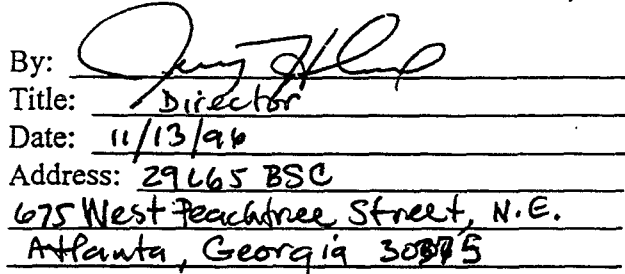 By: Jerry H
Title: Director
Date: 11/13/96
Address: 29L65 BSC
675 West Peachtree Street, N.E.
Atlanta, Georgia 30375